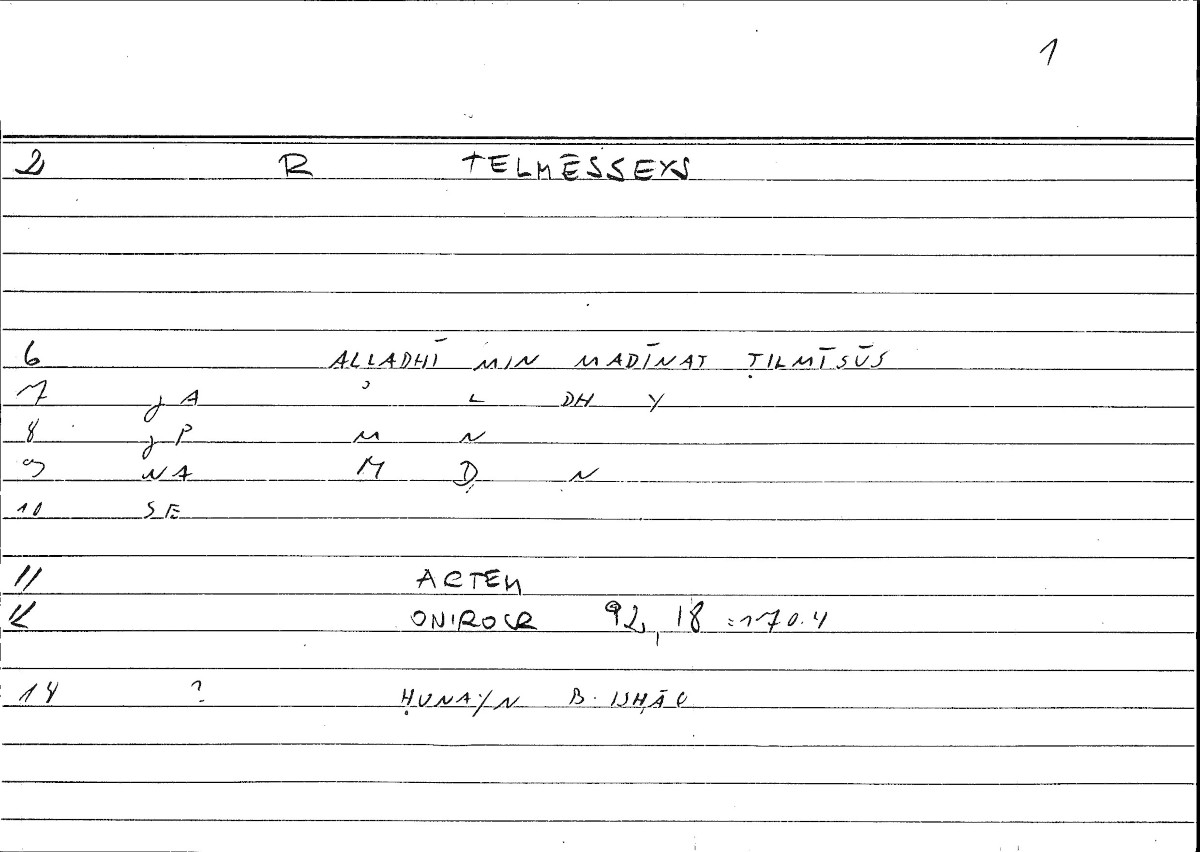 1
2 R TELMĒSSEYS
6 ALLADHĪ MIN MADĪNAT ṬILMĪSŪS
7 jA ʾ L DH Y
8 jP M N
9 NA M D N
10 SE
11 ARTEM
12 ONIROCR 92, 18 = 170.4
14 ? ḤUNAYN B. ISḤĀQ